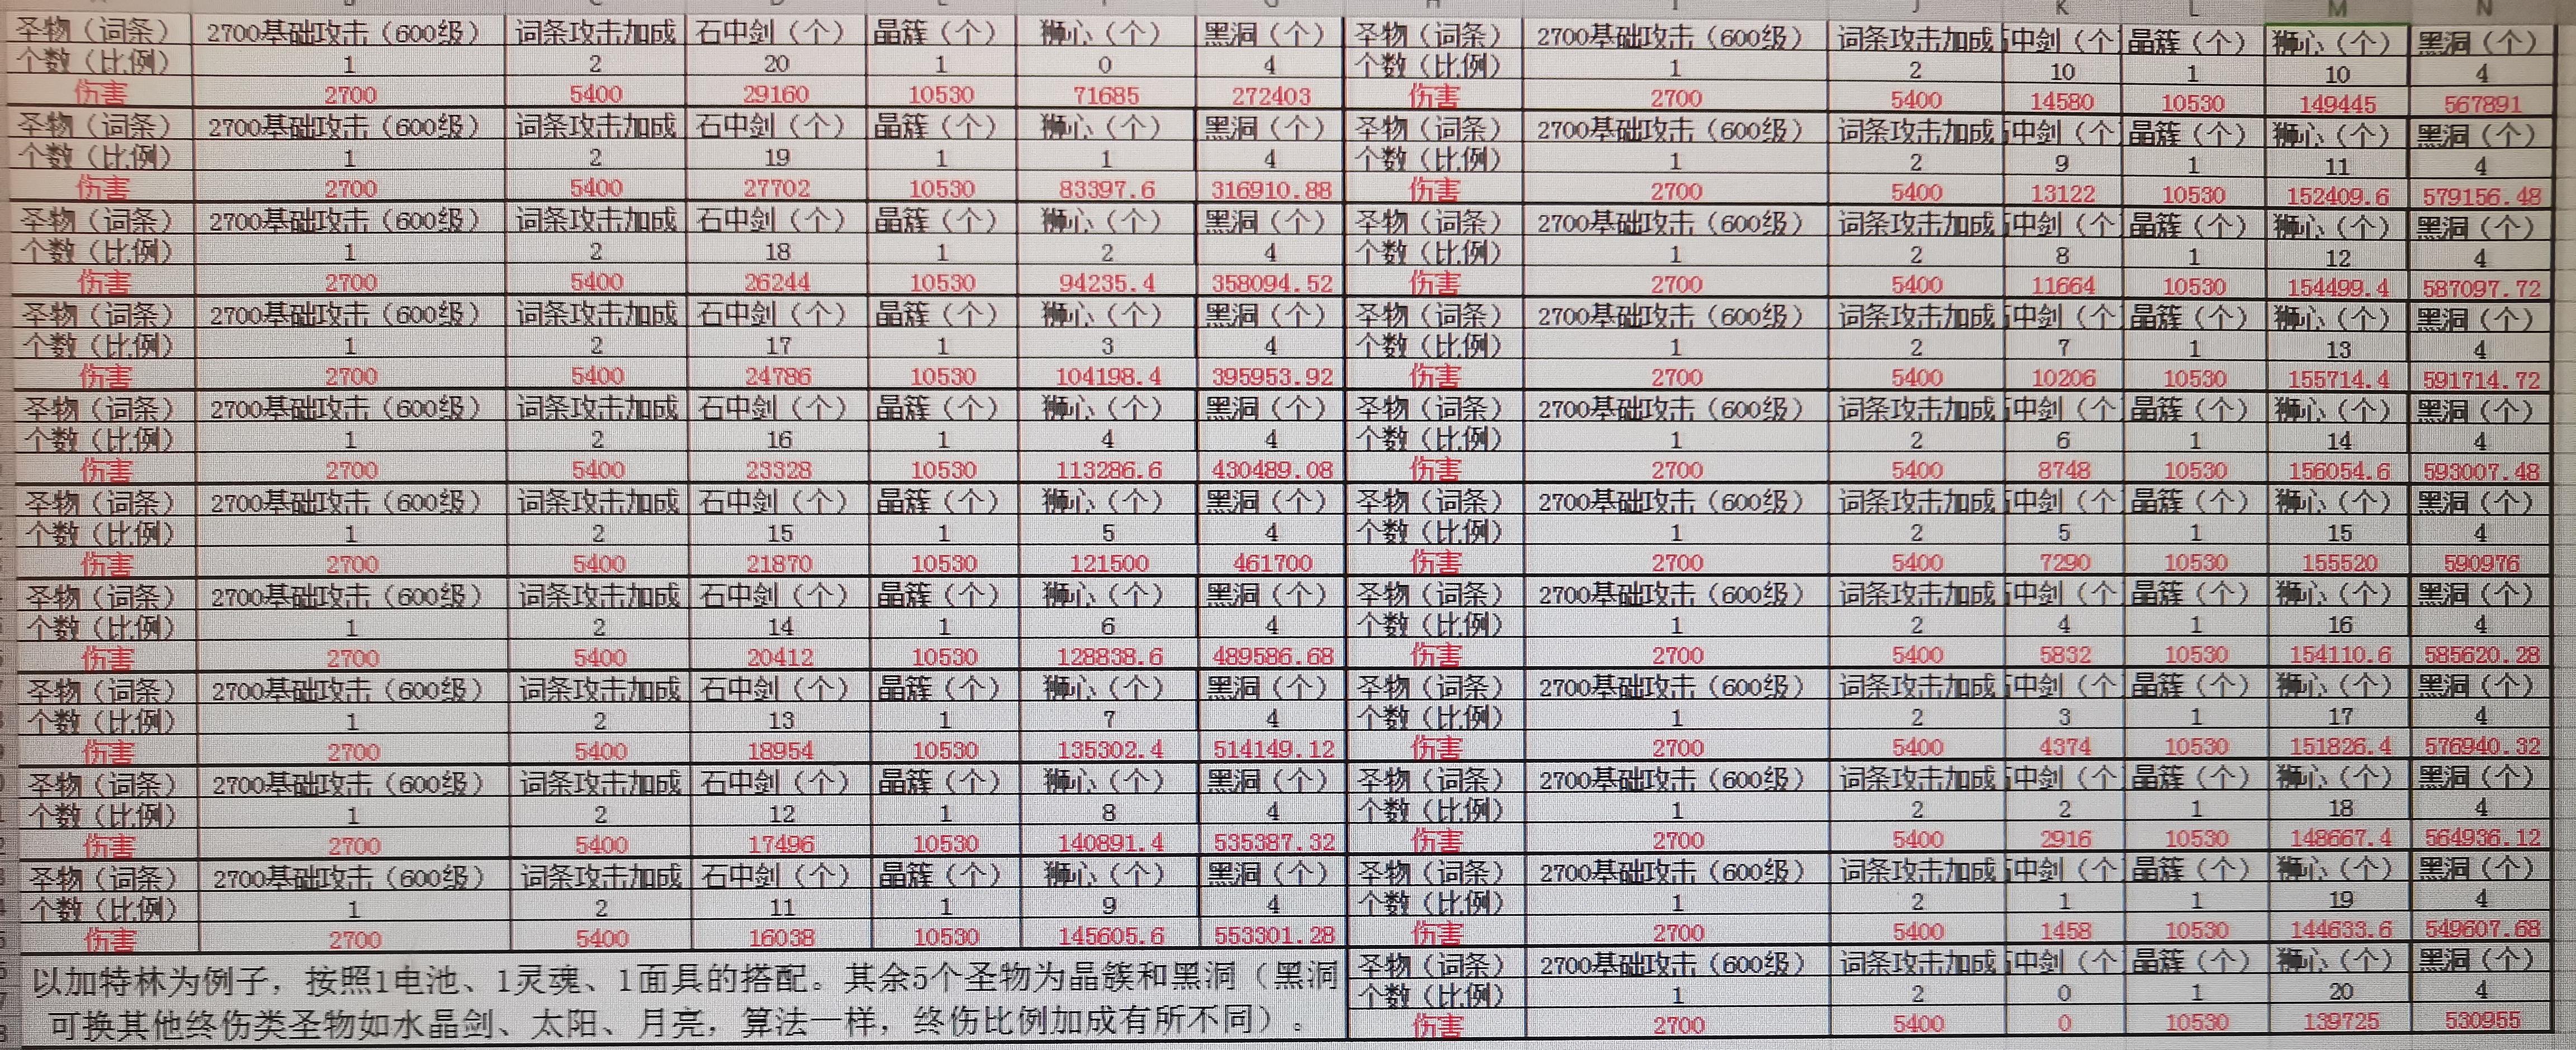 J K L M N
圣物（词条） 2700基础攻击（600级） 词条攻击加成 石中剑（个） 晶簇（个） 狮心（个） 黑洞（个） 圣物（词条） 2700基础攻击（600级） 词条攻击加成 中剑（个 晶簇（个） 狮心（个） 黑洞（个）
个数（比例） 1 2 20 1 0 4 个数（比例） 1 2 10 1 10 4
伤害 2700 5400 29160 10530 71685 272403 伤害 2700 5400 14580 10530 149445 567891
圣物（词条） 2700基础攻击（600级） 词条攻击加成 石中剑（个） 晶簇（个） 狮心（个） 黑洞（个） 圣物（词条） 2700基础攻击（600级） 词条攻击加成 中剑（个 晶簇（个） 狮心（个） 黑洞（个）
个数（比例） 1 2 19 1 1 4 个数（比例） 1 2 9 1 11 4
伤害 2700 5400 27702 10530 83397.6 316910.88 伤害 2700 5400 13122 10530 152409.6 579156.48
圣物（词条） 2700基础攻击（600级） 词条攻击加成 石中剑（个） 晶簇（个） 狮心（个） 黑洞（个） 圣物（词条） 2700基础攻击（600级） 词条攻击加成 中剑（个 晶簇（个） 狮心（个） 黑洞（个）
个数（比例） 1 2 18 1 2 4 个数（比例） 1 2 8 1 12 4
伤害 2700 5400 26244 10530 94235.4 358094.52 伤害 2700 5400 11664 10530 154499.4 587097.72
圣物（词条） 2700基础攻击（600级） 词条攻击加成 石中剑（个） 晶簇（个） 狮心（个） 黑洞（个） 圣物（词条） 2700基础攻击（600级） 词条攻击加成 中剑（个 晶簇（个） 狮心（个） 黑洞（个）
个数（比例） 1 2 17 1 3 4 个数（比例） 1 2 7 1 13 4
伤害 2700 5400 24786 10530 104198.4 395953.92 伤害 2700 5400 10206 10530 155714.4 591714.72
圣物（词条） 2700基础攻击（600级） 词条攻击加成 石中剑（个） 晶簇（个） 狮心（个） 黑洞（个） 圣物（词条） 2700基础攻击（600级） 词条攻击加成 中剑（个 晶簇（个） 狮心（个） 黑洞（个）
个数（比例） 1 2 16 1 4 4 个数（比例） 1 2 6 1 14 4
伤害 2700 5400 23328 10530 113286.6 430489.08 伤害 2700 5400 8748 10530 156054.6 593007.48
圣物（词条） 2700基础攻击（600级） 词条攻击加成 石中剑（个） 晶簇（个） 狮心（个） 黑洞（个） 圣物（词条） 2700基础攻击（600级） 词条攻击加成 中剑（个 晶簇（个） 狮心（个） 黑洞（个）
个数（比例） 1 2 15 1 5 4 个数（比例） 1 2 5 1 15 4
伤害 2700 5400 21870 10530 121500 461700 伤害 2700 5400 7290 10530 155520 590976
圣物（词条） 2700基础攻击（600级） 词条攻击加成 石中剑（个） 晶簇（个） 狮心（个） 黑洞（个） 圣物（词条） 2700基础攻击（600级） 词条攻击加成 中剑（个 晶簇（个） 狮心（个） 黑洞（个）
个数（比例） 1 2 14 1 6 4 个数（比例） 1 2 4 1 16 4
伤害 2700 5400 20412 10530 128838.6 489586.68 伤害 2700 5400 5832 10530 154110.6 585620.28
圣物（词条） 2700基础攻击（600级） 词条攻击加成 石中剑（个） 晶簇（个） 狮心（个） 黑洞（个） 圣物（词条） 2700基础攻击（600级） 词条攻击加成 中剑（个 晶簇（个） 狮心（个） 黑洞（个）
个数（比例） 1 2 13 1 7 4 个数（比例） 1 2 3 1 17 4
伤害 2700 5400 18954 10530 135302.4 514149.12 伤害 2700 5400 4374 10530 151826.4 576940.32
圣物（词条） 2700基础攻击（600级） 词条攻击加成 石中剑（个） 晶簇（个） 狮心（个） 黑洞（个） 圣物（词条） 2700基础攻击（600级） 词条攻击加成 中剑（个 晶簇（个） 狮心（个） 黑洞（个）
个数（比例） 1 2 12 1 8 4 个数（比例） 1 2 2 1 18 4
伤害 2700 5400 17496 10530 140891.4 535387.32 伤害 2700 5400 2916 10530 148667.4 564936.12
圣物（词条） 2700基础攻击（600级） 词条攻击加成 石中剑（个） 晶簇（个） 狮心（个） 黑洞（个） 圣物（词条） 2700基础攻击（600级） 词条攻击加成 中剑（个 晶簇（个） 狮心（个） 黑洞（个）
个数（比例） 1 2 11 1 9 4 个数（比例） 1 2 1 1 19 4
伤害 2700 5400 16038 10530 145605.6 553301.28 伤害 2700 5400 1458 10530 144633.6 549607.68
以加特林为例子，按照1电池、1灵魂、1面具的搭配。其余5个圣物为晶簇和黑洞（黑洞
可换其他终伤类圣物如水晶剑、太阳、月亮，算法一样，终伤比例加成有所不同）。
圣物（词条） 2700基础攻击（600级） 词条攻击加成 中剑（个 晶簇（个） 狮心（个） 黑洞（个）
个数（比例） 1 2 0 1 20 4
伤害 2700 5400 0 10530 139725 530955